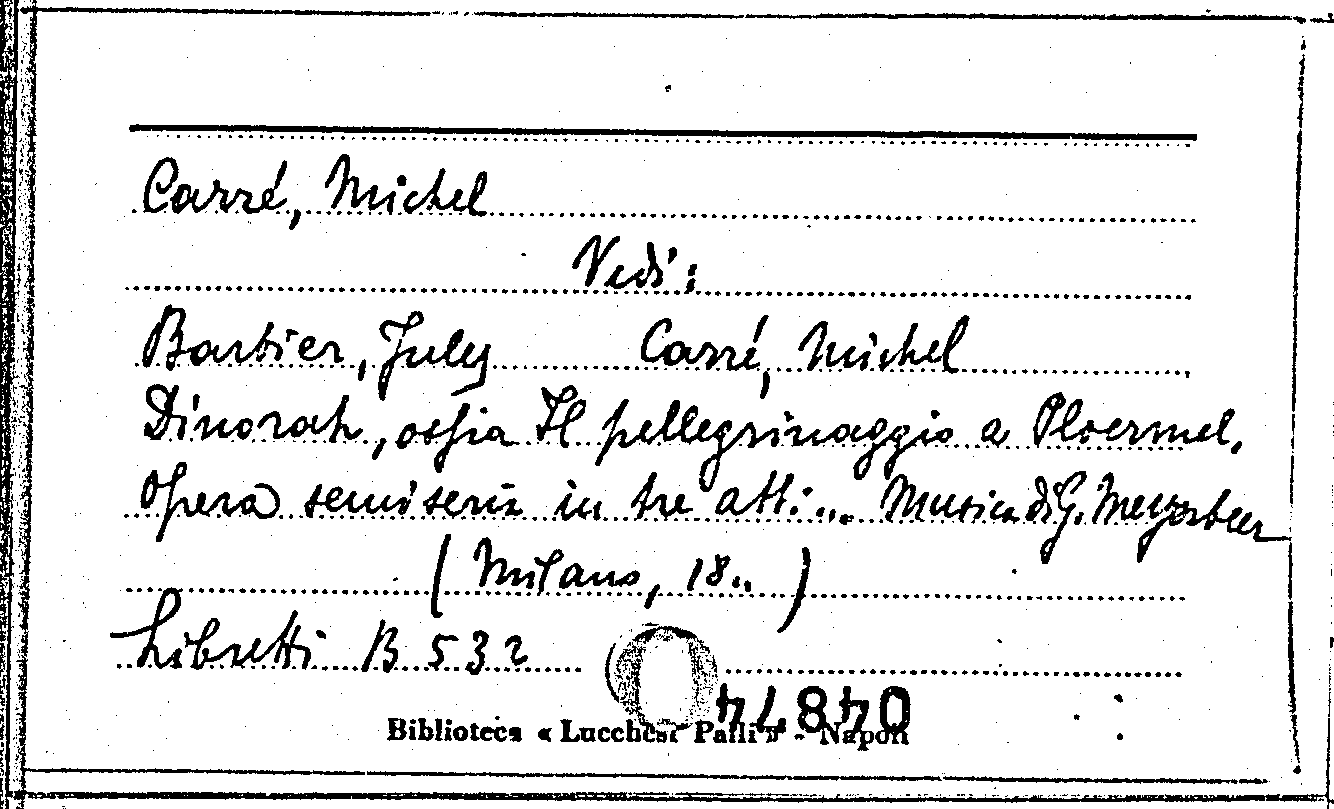 Carré, Michel
Vedi:
Barbier, July Carré, Michel
Dinorah, ossia Il pellegrinaggio a Ploermel.
Opera semiseria in tre atti... Musica di G. Meyerbeer
(Milano, 18..)
Libretti B 532
04874
Biblioteca « Lucchesi Palli » - Napoli